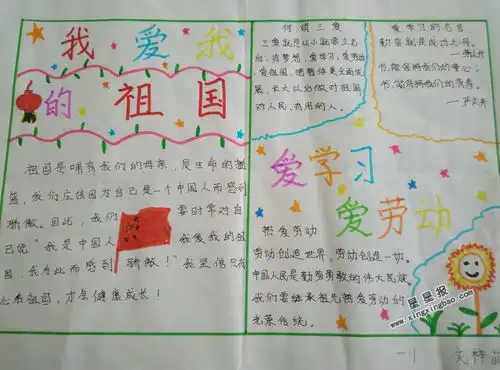 我爱我
的祖国
祖国是哺育我们的母亲,是生命的摇
篮,我们应该因为自己是一个中国人而感到
骄傲。因此,我们要时常对自
己说“我是中国人我爱我的祖
国,我为此而感到骄傲!”我坚信只有
心系祖国,才会健康成长!
何谓三爱
三爱就是从小就要立志
向,有梦想,爱学习,爱劳动
爱祖国,德智体美全面发
展,长大以后做对祖国
对人民,有用的人。
爱学习的名言
勤奋就是成功之母。
书,能保持我们的童心;
书,能保持我们的青春。
—严文井
爱学习
爱劳动
热爱劳动
劳动创造世界,劳动创造一切。
中国人民是勤劳勇敢的伟大民族
我们要继承祖先热爱劳动的
光荣传统。
星星报
www.xingxingbao.com
一1